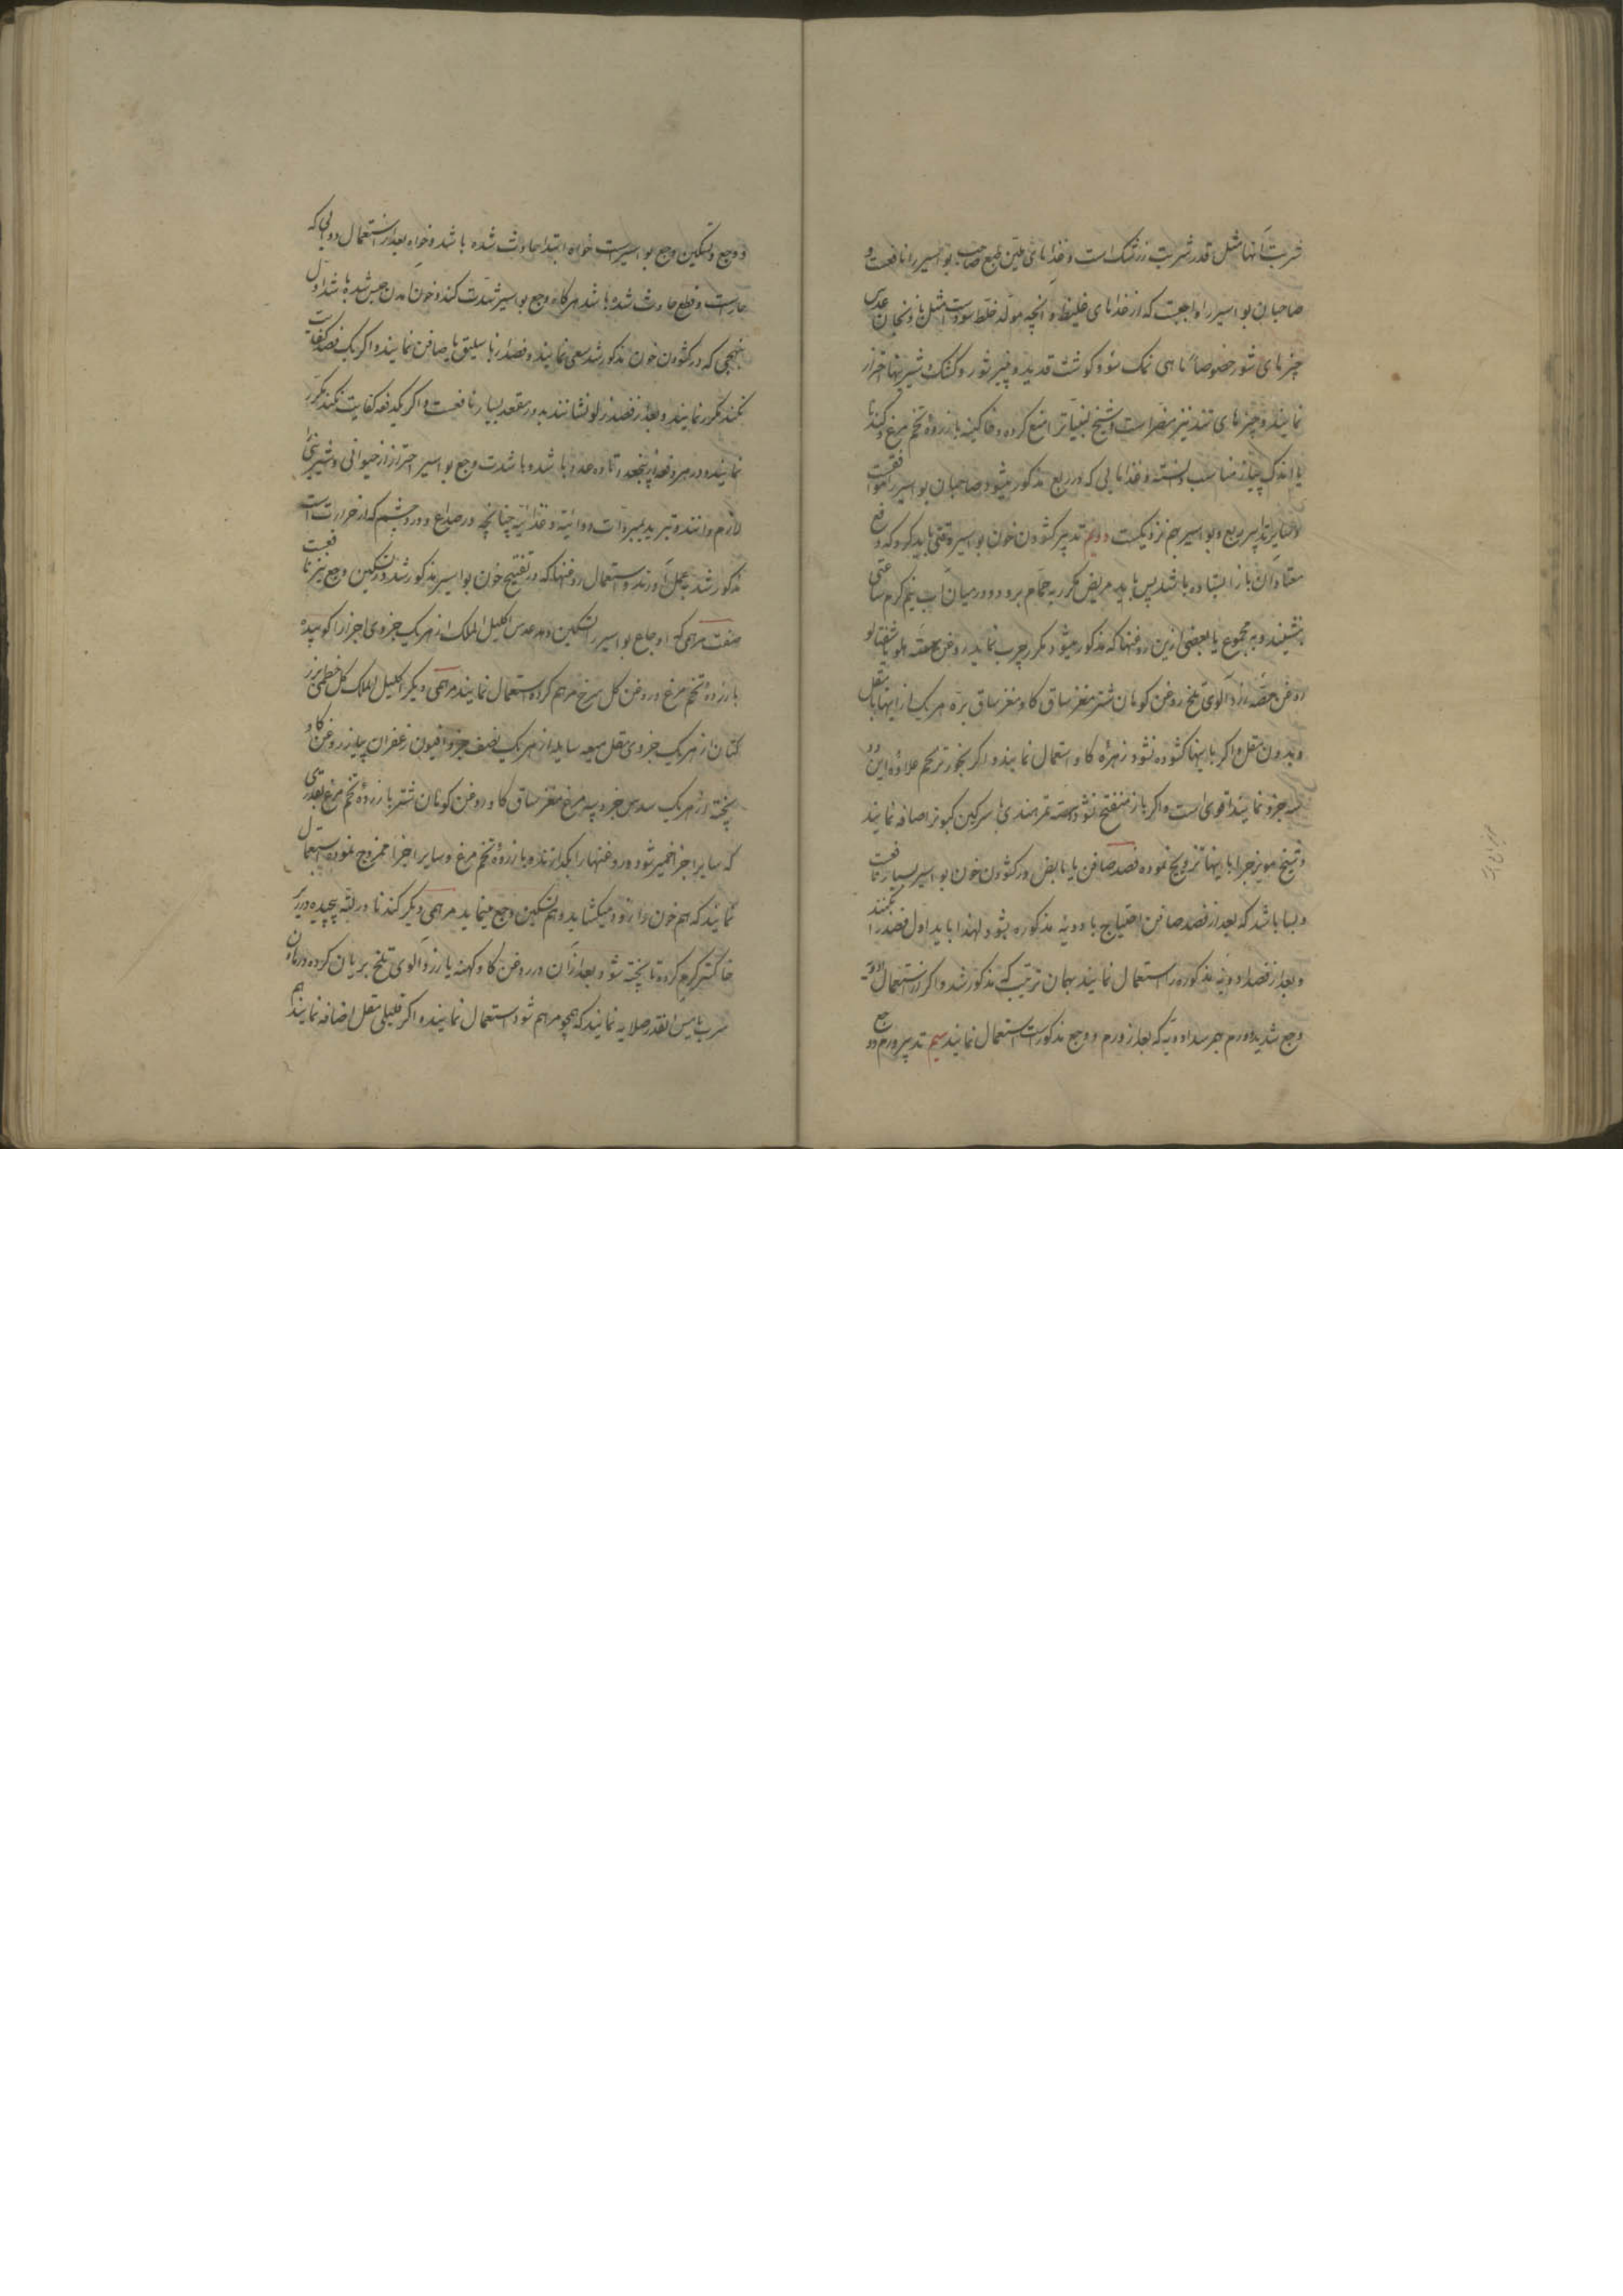 شربت آنها مثل قدر شربت زرشک است و غذاهای ملین طبع صاحب بواسیر را نافعست و
صاحبان بواسیر را واجبست که از غذاهای غلیظ و آنچه مولد خلط سوداست مثل بادنجان و عدس
چیزهای شور خصوصاً ماهی نمک سود و گوشت قدید و پنیر شور و کشک و شیرینیها احتراز
نمایند و چیزهای تند نیز مضر است و شیخ منع کرده و خاکینه با زرده تخم مرغ و گندنا
با اندک پیاز مناسب دانسته و غذاهایی که در ربع مذکور میشود صاحبان بواسیر را موافقست
تدابیر ربع و بواسیر بهم نزدیکست دویم تدبیر گشودن خون بواسیر وقتی باید کرد که دفع
معتاد آن باز ایستاده باشد پس باید مریض مکرر به حمام برود و در میان آب نیم گرم ساعتی
بنشیند و به مجموع یا بعضی ازین روغنها که مذکور میشود مکرر چرب نماید روغن هسته هلو یا شفتالو
روغن هسته زردآلوی تلخ روغن کوهان شتر مغز ساق گاو مغز ساق بره هر یک از اینها با مقل
و بدون مقل و اگر باینها گشوده نشود زهره گاو استعمال نمایند و اگر بخور مریم علاوه این دو
سه جزو نمایند اقوی است و اگر باز منفتح نشود هسته تمر هندی با سرگین کبوتر اضافه نمایند
و شیخ مویزج را باینها ترویج نموده فصد صافن یا مابض در گشودن خون بواسیر بسیار نافعست
و بسا باشد که بعد از فصد صافن احتیاج بادویه مذکوره نشود لهذا باید اول فصد را بکنند
و بعد از فصد ادویه مذکوره را استعمال نمایند بهمان ترتیب که مذکور شد و اگر از استعمال ادویه
وجع شدید و ورم بهم رسد ادویه که بعد از ورم و وجع مذکور است استعمال نمایند سیم تدبیر ورم و وجع
و وجع و تسکین وجع بواسیرست خواه ابتدا حادث شده باشد و خواه بعد از استعمال دوایی که
حار است و قطع حادث شده باشد هرگاه وجع بواسیر شدت کند و خون آمدن حبس شده باشد اول
بنهجی که در گشودن خون مذکور شد سعی نمایند و فصد از باسلیق یا صافن نمایند و اگر یک فصد کفایت
نکند مکرر نمایند و بعد از فصد زلو نشانند بدور مقعد بسیار نافعست و اگر یکدفعه کفایت نکند مکرر
نمایند و در هر دفعه از پنجعدد تا ده عدد باشد و با شدت وجع بواسیر احتراز از حیوانی و شیرینی را
لازم دانند و تبرید بمبردات دوائیه و غذائیه چنانچه در صداع و درد چشم که از حرارت است
مذکور شد بعمل آورند و استعمال روغنها که در تفتیح خون بواسیر مذکور شد در تسکین وجع نیز نافعست
صفت مرهمی که اوجاع بواسیر را تسکین دهد عدس اکلیل الملک از هر یک جزوی اجزا را کوبیده
با زرده تخم مرغ و روغن گل سرخ مرهم کرده استعمال نمایند مرهمی دیگر اکلیل الملک گل خطمی بزر
کتان از هر یک جزوی مقل میعه سایله از هر یک نصف جزو افیون زعفران پیاز در روغن گاو
پخته از هر یک سدس جزو پیه مرغ مغز ساق گاو روغن کوهان شتر با زرده تخم مرغ بقدری
که سایر اجزا خمیر شود و روغنها را بگدازند و با زرده تخم مرغ و سایر اجزا ممزوج نموده استعمال
نمایند که هم خون را زود میگشاید و هم تسکین وجع مینماید مرهمی دیگر گندنا در لته پیچیده در زیر
خاکستر گرم کرده تا پخته شود بعد از آن در روغن گاو کهنه یا زردآلوی تلخ بریان کرده در هاون
سرب بایس القدر صلایه نمایند که همچو مرهم شود استعمال نمایند و اگر قلیلی مقل اضافه نمایند هم